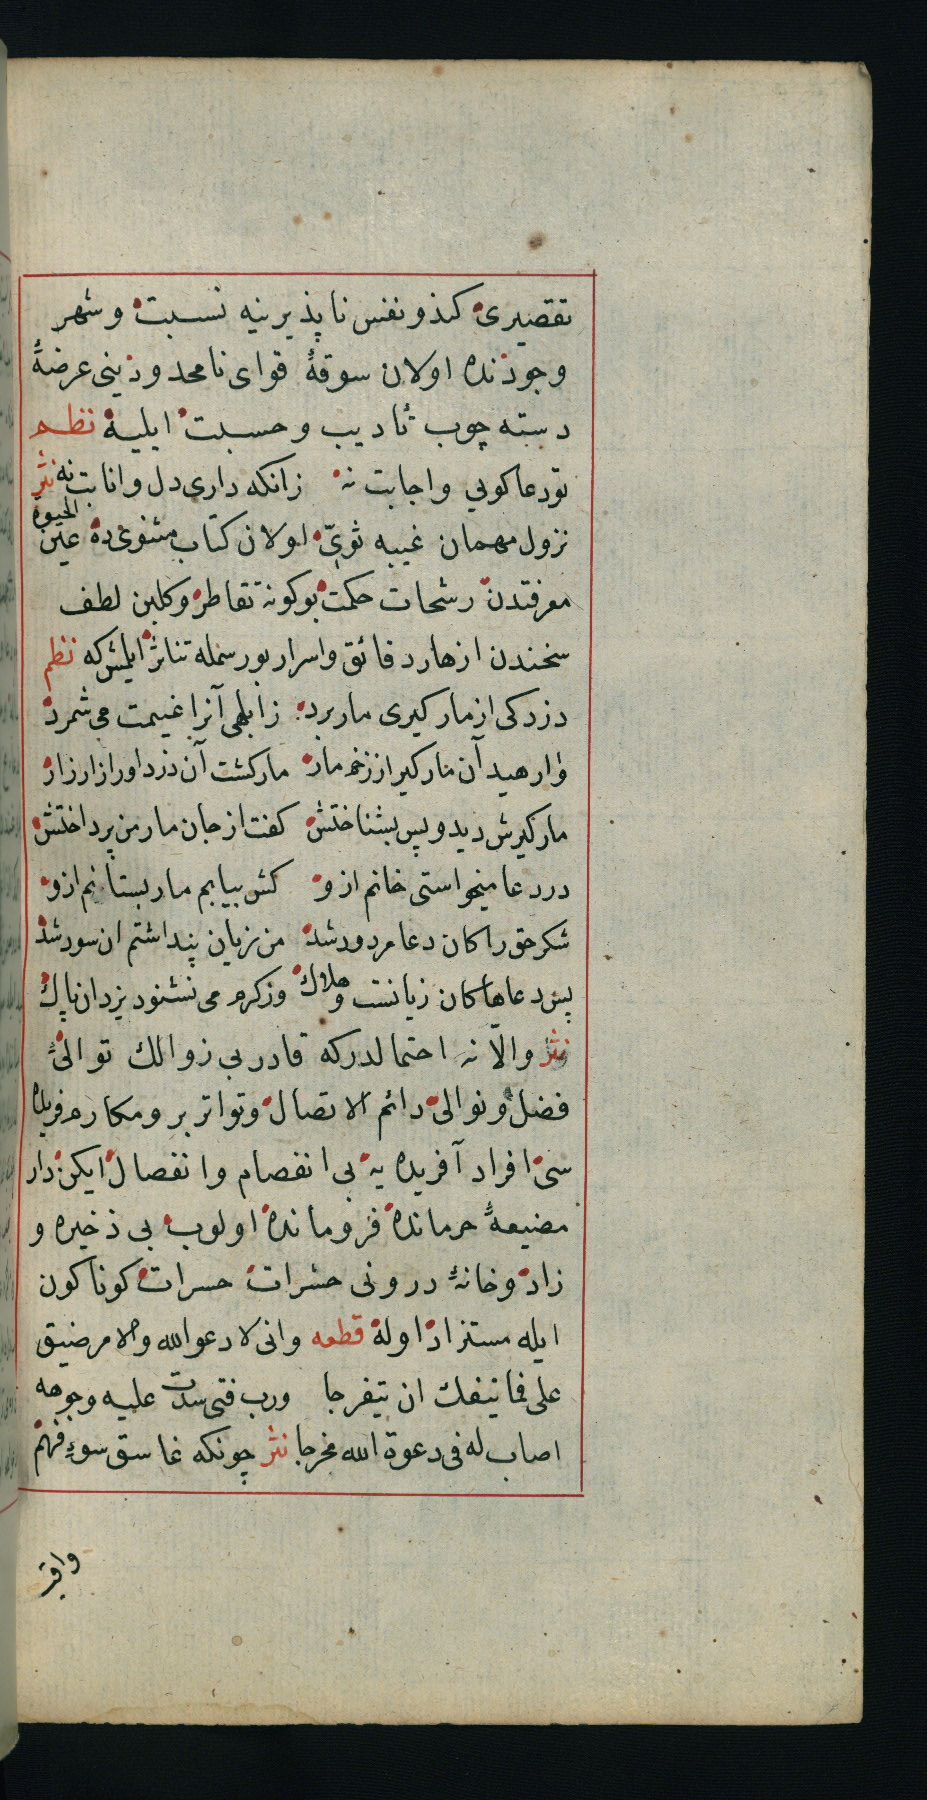 تقصیری کندو نفس ناپذیرینه نسبت و شهر
وجودنده اولان سوقهٔ قوای نامحدودینی عرضهٔ
دسته چوب تادیب و حسبت ایلیه نظم
تو دعا کویی و اجابت نه زانکه داری دل و انابت نه نثر
نزول مهمان غیبه ثویّ اولان کتاب مثنوی‌ده عین الحیوة
معرفتدن رشحات حکمت بوکونه تقاطر و کلبن لطف
سخندن ازهار دقائق و اسرار بو رسمله تناثر ایلمش که نظم
دزدکی از مارکیری مار برد زابلهی آنرا غنیمت می شمرد
وارهید آن مارکیر از زخم مار مار کشت آن دزد اورا زار زار
مارکیرش دید و پس بشناختش کفت از جان مار من پرداختش
در دعا میخواستی خانم ازو کش بیابم مار بستانم ازو
شکر حق را کان دعا مردود شد من زیان پنداشتم ان سود شد
پس دعاها کان زیانست و هلاک وزکرم می نشنود یزدان پاک
نثر والّا نه احتمالدرکه قادر بی زوالك توالیٔ
فضل و نوالی دائم الاتصال و تواتر بر و مکارم فریده
سی افراد آفریده یه بی انفصام و انفصال ایکن دار
مضیعهٔ حرمانده فرومانده اولوب بی ذخیره و
زاد و خانهٔ درونی حشرات حسرات کوناکون
ایله مستزاد اوله قطعه وانی لا دعو الله والامر ضیق
علی فما ینفك ان یتفرجا ورب فتی سدت علیه وجوهه
اصاب له فی دعوة الله مخرجا نثر چونکه غاسق سوء فهم
واقر